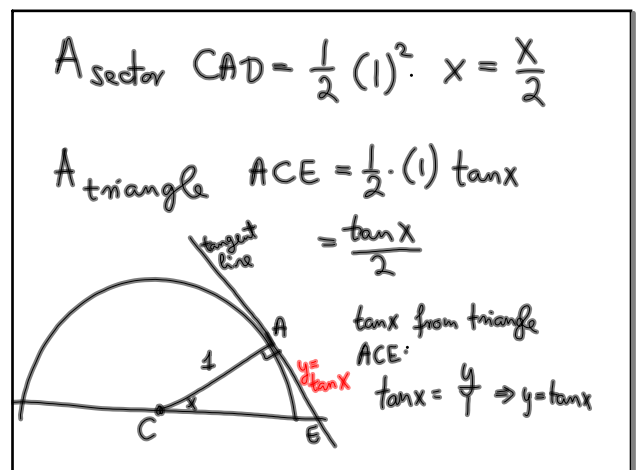 A sector CAD = 1/2 (1)². x = x/2
A triangle ACE = 1/2 · (1) tanx
= tanx/2
tangent
line
A
tanx from triangle
ACE:
1
y=
tanx
tanx = y/1 ⇒ y=tanx
x
C
E